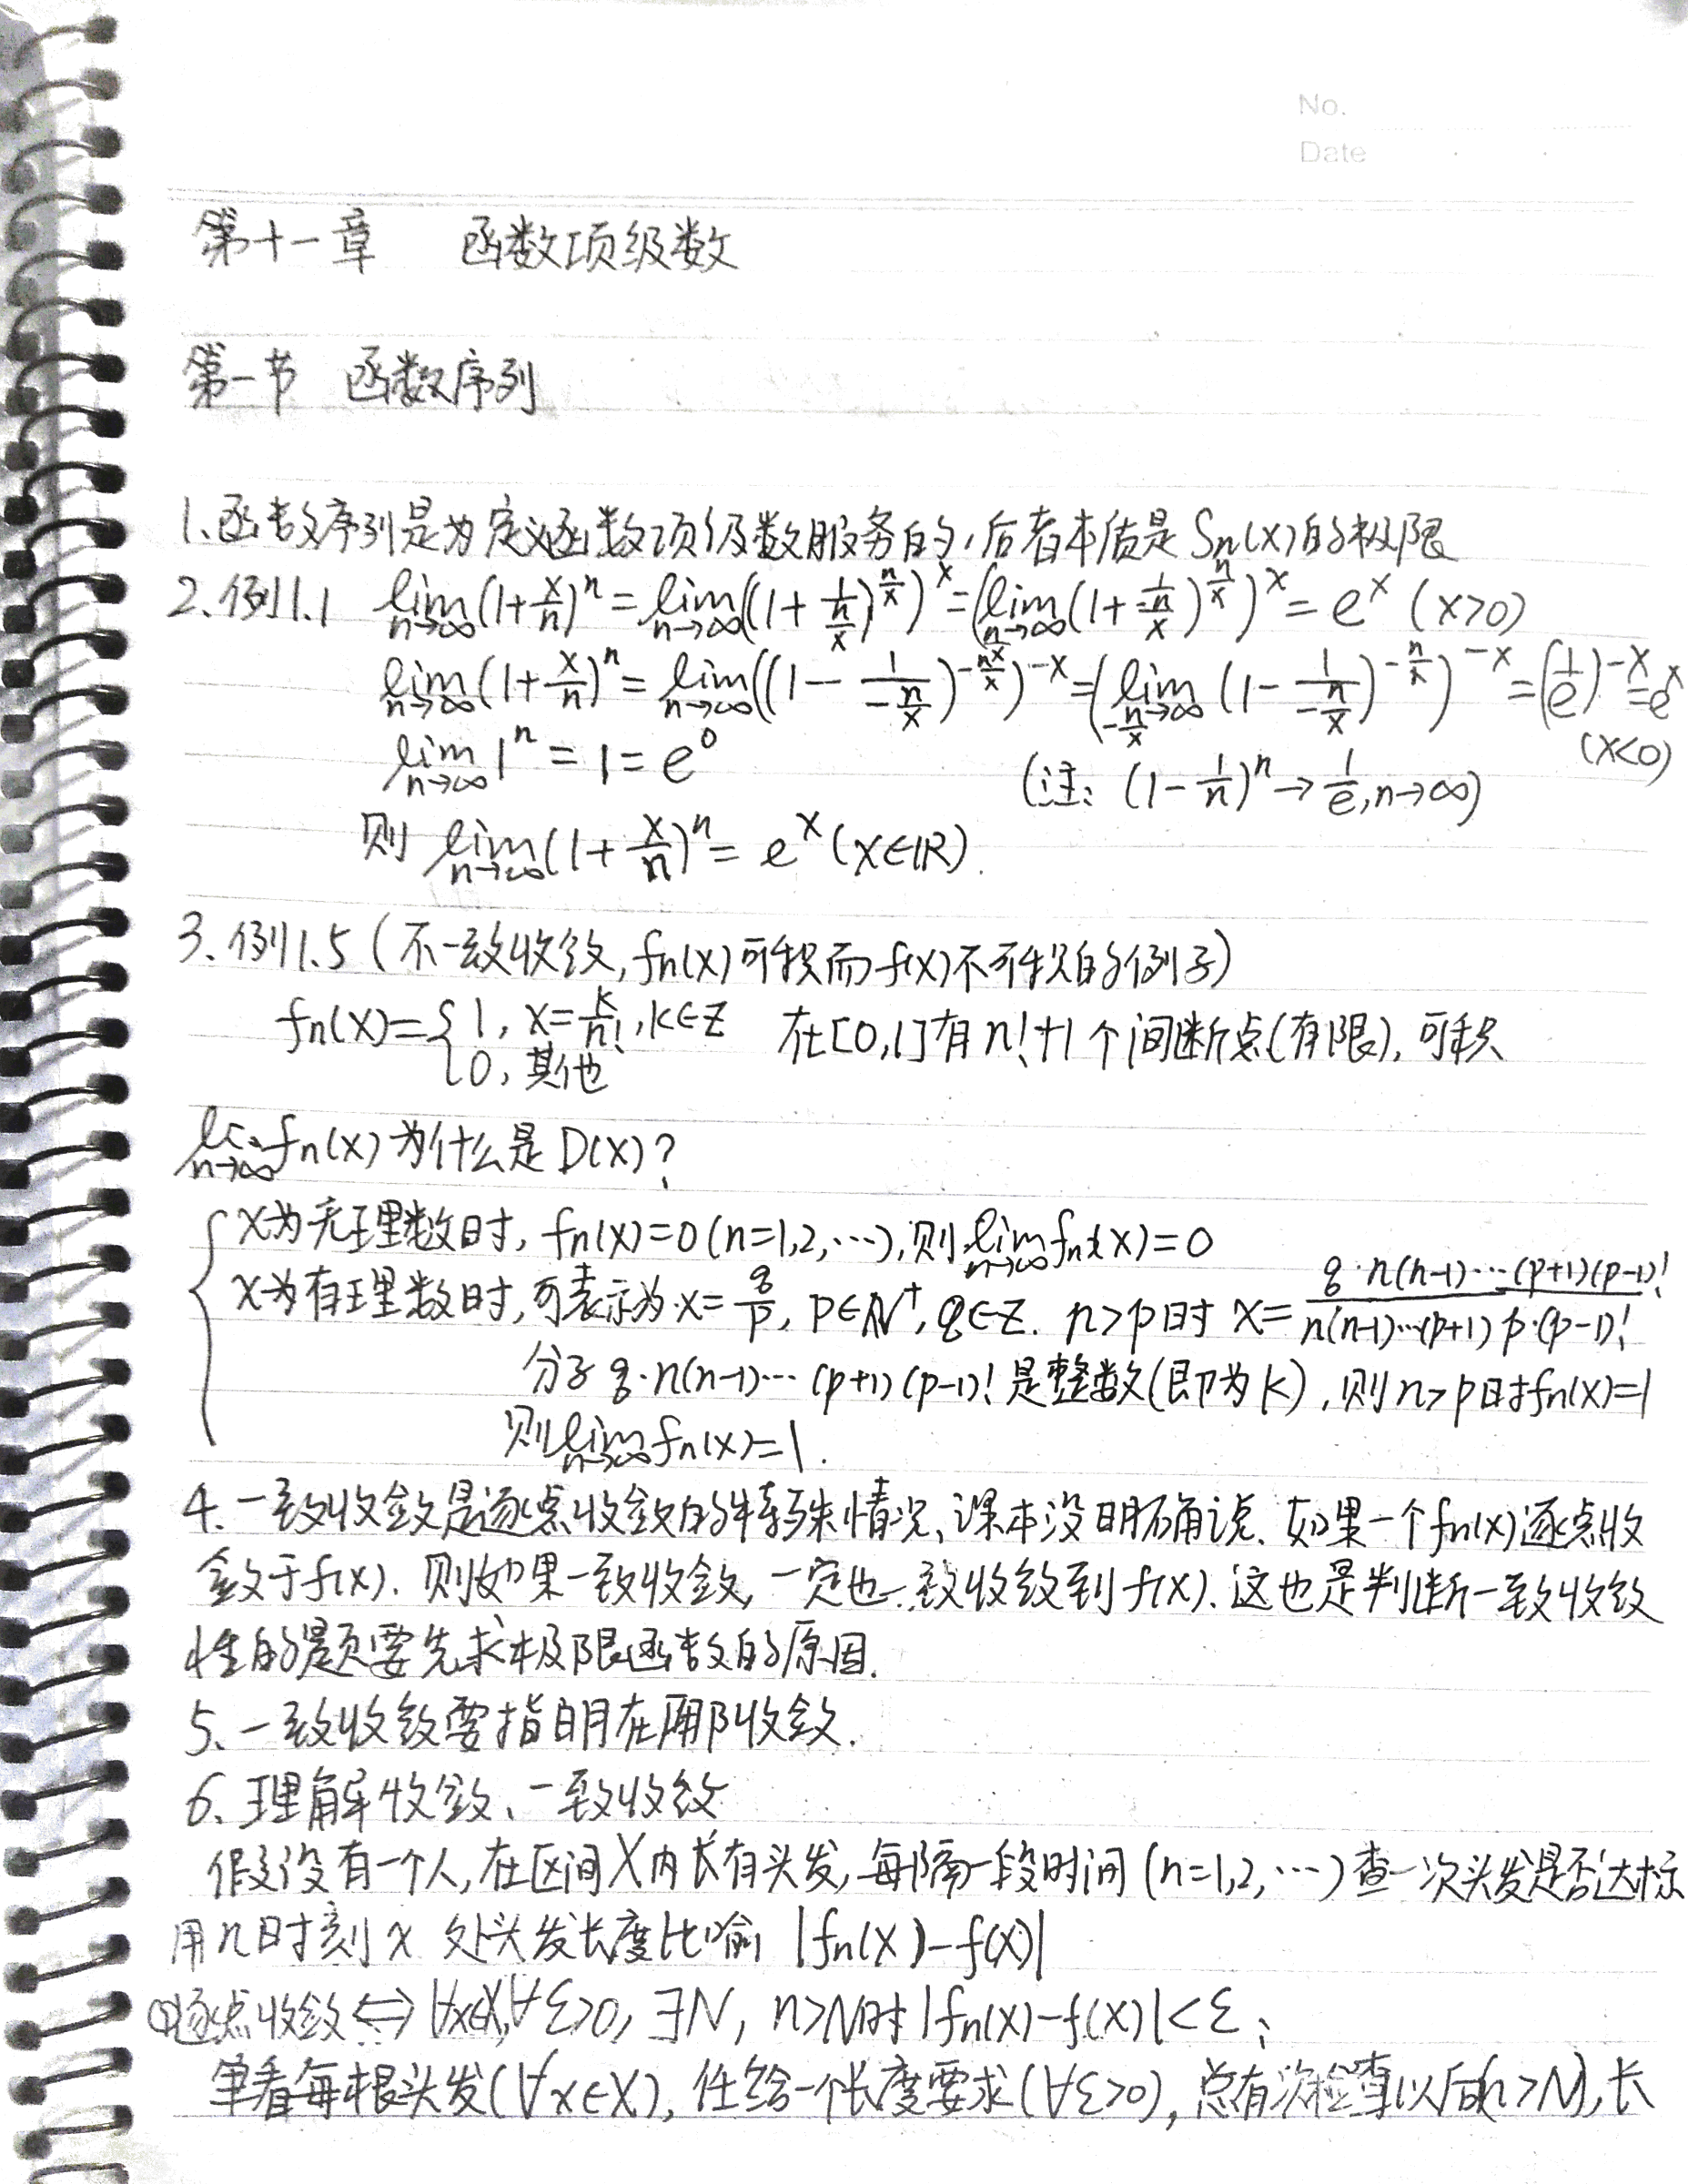 No.
Date
第十一章 函数项级数
第一节 函数序列
1、函数序列是为定义函数项级数服务的,后者本质是 Sn(x)的极限
2、例1.1 lim_{n→∞}(1+x/n)^n = lim_{n→∞}((1+1/(n/x))^{n/x})^x = (lim_{n/x→∞}(1+1/(n/x))^{n/x})^x = e^x (x>0)
lim_{n→∞}(1+x/n)^n = lim_{n→∞}((1-1/(-n/x))^{-n/x})^{-x} = (lim_{-n/x→∞}(1-1/(-n/x))^{-n/x})^{-x} = (1/e)^{-x} = e^x
(x<0)
lim_{n→∞} 1^n = 1 = e^0
(注: (1-1/n)^n → 1/e, n→∞)
则 lim_{n→∞}(1+x/n)^n = e^x (x∈R).
3、例1.5 (不一致收敛, fn(x)可积而f(x)不可积的例子)
fn(x)={1, x=k/n!, k∈Z 在[0,1]有n!+1个间断点(有限), 可积
0, 其他
lim_{n→∞} fn(x) 为什么是 D(x)?
x为无理数时, fn(x)=0 (n=1,2,…), 则 lim_{n→∞} fn(x)=0
x为有理数时, 可表示为 x=q/p, p∈N⁺, q∈Z. n>p时 x=(q·n(n-1)…(p+1)(p-1)!)/(n(n-1)…(p+1)p·(p-1)!)
分子 q·n(n-1)…(p+1)(p-1)! 是整数(即为k), 则 n>p时fn(x)=1
则 lim_{n→∞} fn(x)=1.
4、一致收敛是逐点收敛的特殊情况、课本没明确说. 如果一个fn(x)逐点收
敛于f(x). 则如果一致收敛, 一定也一致收敛到f(x). 这也是判断一致收敛
性的题要先求极限函数的原因.
5、一致收敛要指明在哪收敛.
6、理解收敛、一致收敛
假设有一个人, 在区间X内长有头发, 每隔一段时间(n=1,2,…)查一次头发是否达标
用n时刻 x 处头发长度比喻 |fn(x)-f(x)|
①逐点收敛⇔∀x∈X,∀ε>0, ∃N, n>N时|fn(x)-f(x)|<ε、
单看每根头发(∀x∈X), 任给一个长度要求(∀ε>0), 总有次检查以后(n>N), 长